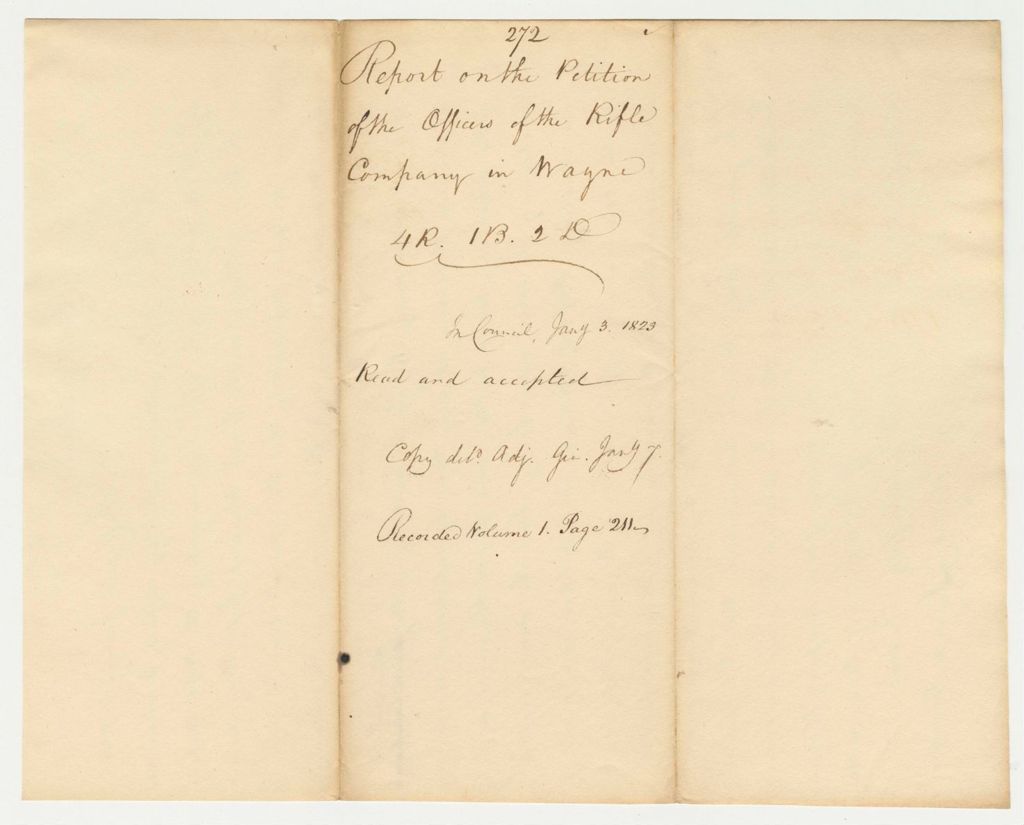 272
Report on the Petition
of the Officers of the Rifle
Company in Wayne
4 R. 1 B. 2 D
In Council, Jany 3. 1823
Read and accepted
Copy deld. Adj. Gen. Jany 7.
Recorded Volume 1. Page 211